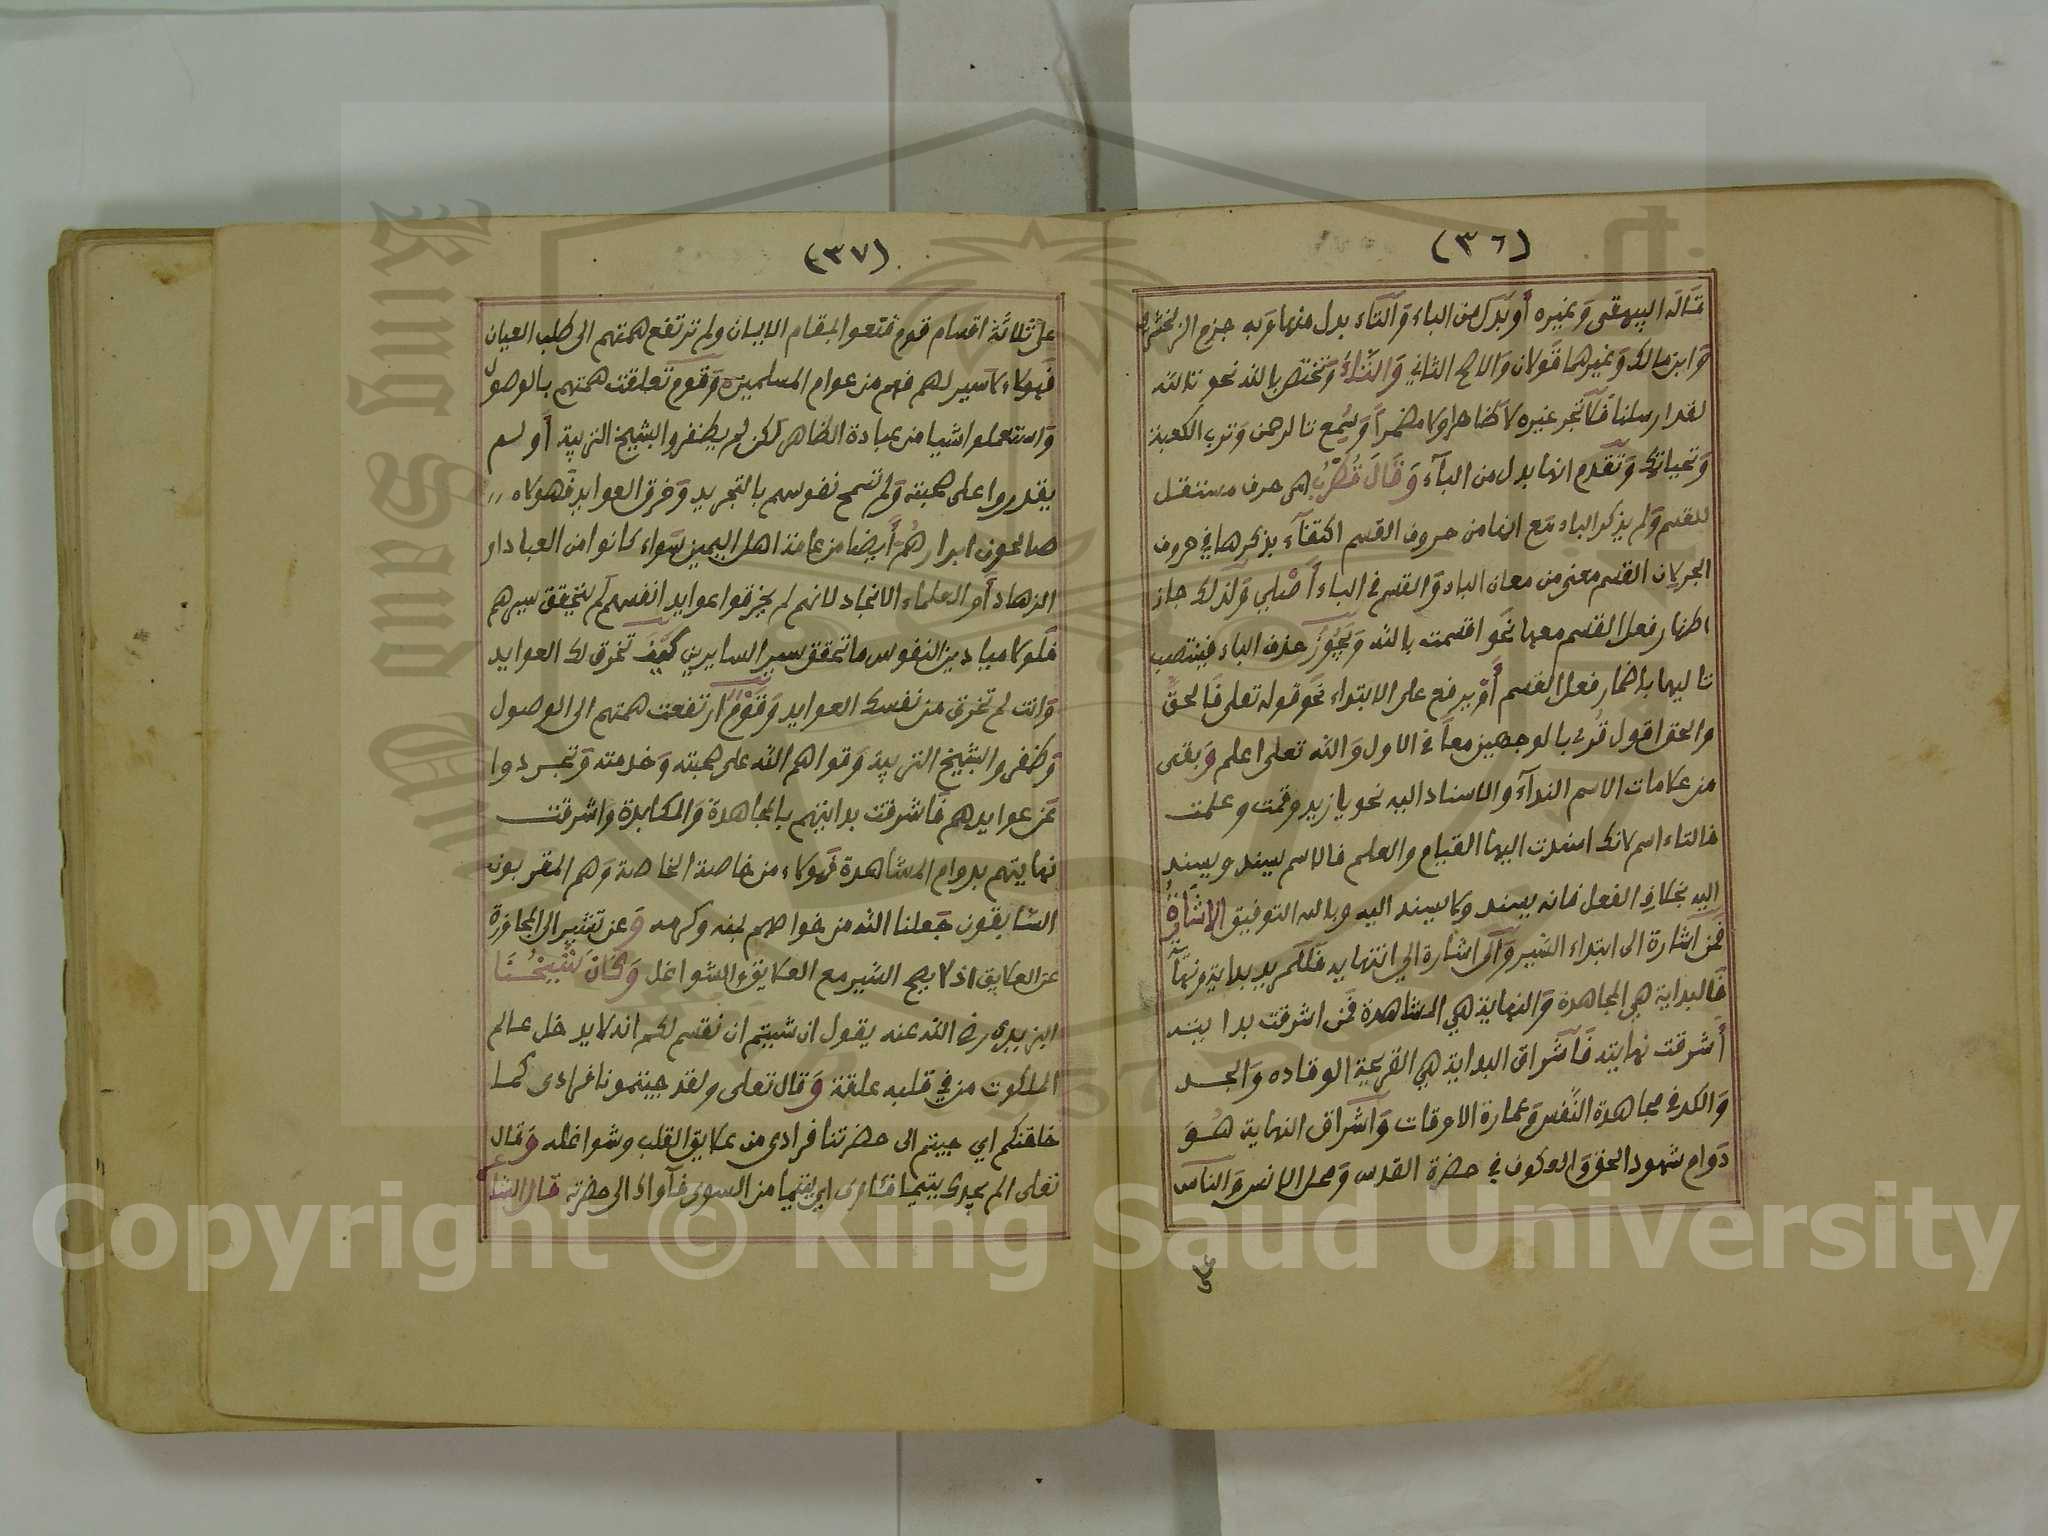 (٣٦)
قاله البيهقى وغيره أو بدل من الباء والتاء بدل منها وبه جزم الزمخشرى
وابن مالك وغيرهما قولان والارجح الثاني والتاء وتختص بالله نحو تالله
لقد ارسلنا فلا تجر غيره لا ظاهرا ولا مضمرا وسمع تالرحمن وترب الكعبة
وتحياتك وتقدم انها بدل من الباء وقال قطرب هى حرف مستقل
للقسم ولم يذكر الباء مع انها من حروف القسم اكتفاء بذكرها في حروف
الجر لان القسم معنى من معان الباء والقسم في الباء أصلي ولذلك جاز
اظهار فعل القسم معها نحو اقسمت بالله ويجوز حذف الباء فينتصب
تاليها باضمار فعل القسم أو يرفع على الابتداء نحو قوله تعلى فالحق
والحق اقول قرئ بالوجهين معا في الاول والله تعلى اعلم وبقى
من علامات الاسم النداء والاسناد اليه نحو يا زيد وقمت وعلمت
فالتاء اسم لانك اسندت اليها القيام والعلم فالاسم يسند ويسند
اليه بخلاف الفعل فانه يسند ولا يسند اليه وبالله التوفيق الاشارة
فمن اشارة الى ابتداء السير والى اشارة الي انتهايه فلكم يد بداية ونهاية
فالبداية هي المجاهدة والنهاية هي المشاهدة فمن اشرقت بدايته
أشرقت نهايته فاشراق البداية هي القريحة الوقاده والجد
والكد في مجاهدة النفس وعمارة الاوقات واشراق النهاية هو
دوام شهود الحق والعكوف في حضرة القدس ومحل الانس والناس
على
(٣٧)
على ثلاثة اقسام قوم قنعوا بمقام الايمان ولم ترتفع همتهم الى طلب العيان
فهولاء لا سير لهم فهم من عوام المسلمين وقوم تعلقت همتهم بالوصول
واستعملوا اشيا من عبادة الظاهر لكن لم يظفروا بشيخ التربية أو لم
يقدروا على صحبته ولم تسمح نفوسهم بالتجريد وخرق العوايد فهولاء
صالحون ابرار هم أيضا من عامة اهل اليمين سواء كانوا من العباد او
الزهاد أو العلماء الانجاد لانهم لم يخرقوا عوايد انفسهم لم يتحقق سيرهم
فلولا ميادين النفوس ما تحقق سير السايرين كيف تخرق لك العوايد
وانت لم تخرق من نفسك العوايد وقوم ارتفعت همتهم الى الوصول
وظفروا بشيخ التربية وقواهم الله على صحبته وخدمته وتجردوا
عن عوايدهم فاشرقت بدايتهم بالمجاهدة والمكابدة واشرقت
نهايتهم بدوام المشاهدة فهولاء من خاصة الخاصة وهم المقربون
السابقون جعلنا الله من خواصهم بمنه وكرمه وعن تشير الى المجاوزة
عن العلايق اذ لا يصح السير مع العلايق والشواغل وكان شيخنا
البزيدى رضي الله عنه يقول ان شيتم ان نقسم لكم انه لا يدخل عالم
الملكوت من في قلبه علقة وقال تعلى ولقد جيتمونا فرادى كما
خلقنكم اي جيتم الى حضرتنا فرادى من علايق القلب وشواغله وقال
تعلى الم يجدك يتيما فئاوى اي يتيما من السوى فآواك الى حضرته قال الشاعر
Copyright © King Saud University
King Saud Univ
1957